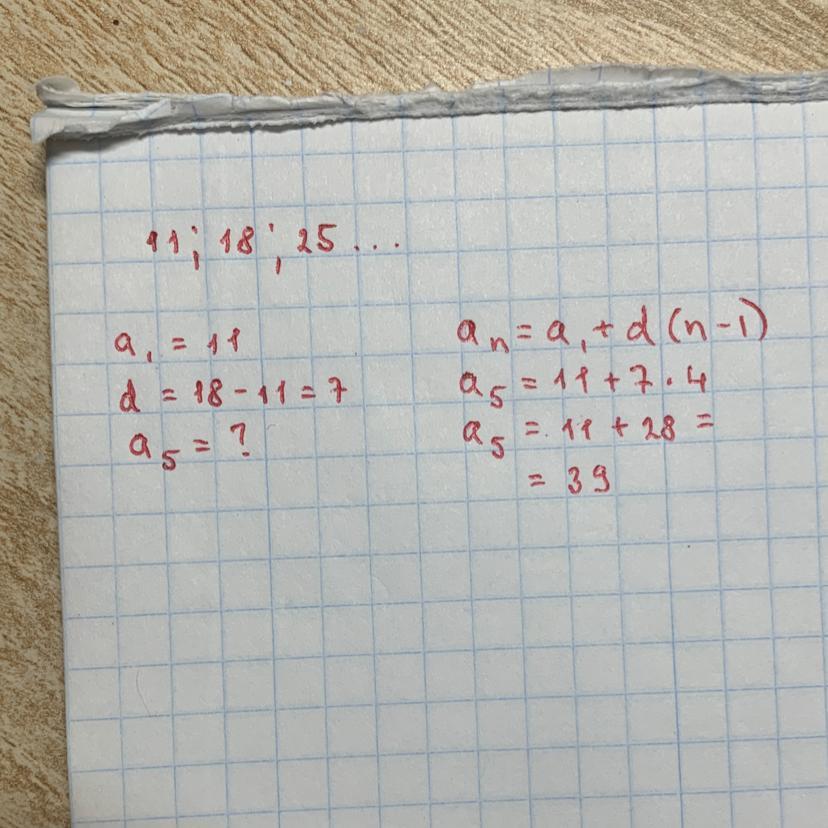 11; 18; 25...
a₁ = 11
d = 18 - 11 = 7
a₅ = ?
aₙ = a₁ + d (n - 1)
a₅ = 11 + 7 · 4
a₅ = 11 + 28 =
= 39